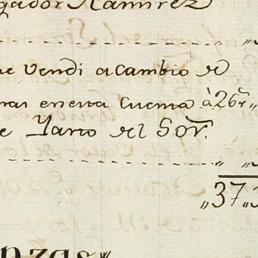 gador Ramirez
e vendi a cambio de
ras en esta Cuenta à 26 r,,
e Tarro del Sor.
,,37,,
nzas